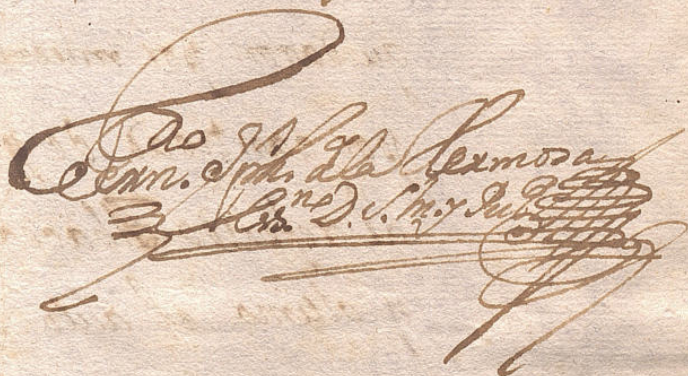 Fern.do Jph. dela Hermosa
Ess.no D. S. M. y Pu.co